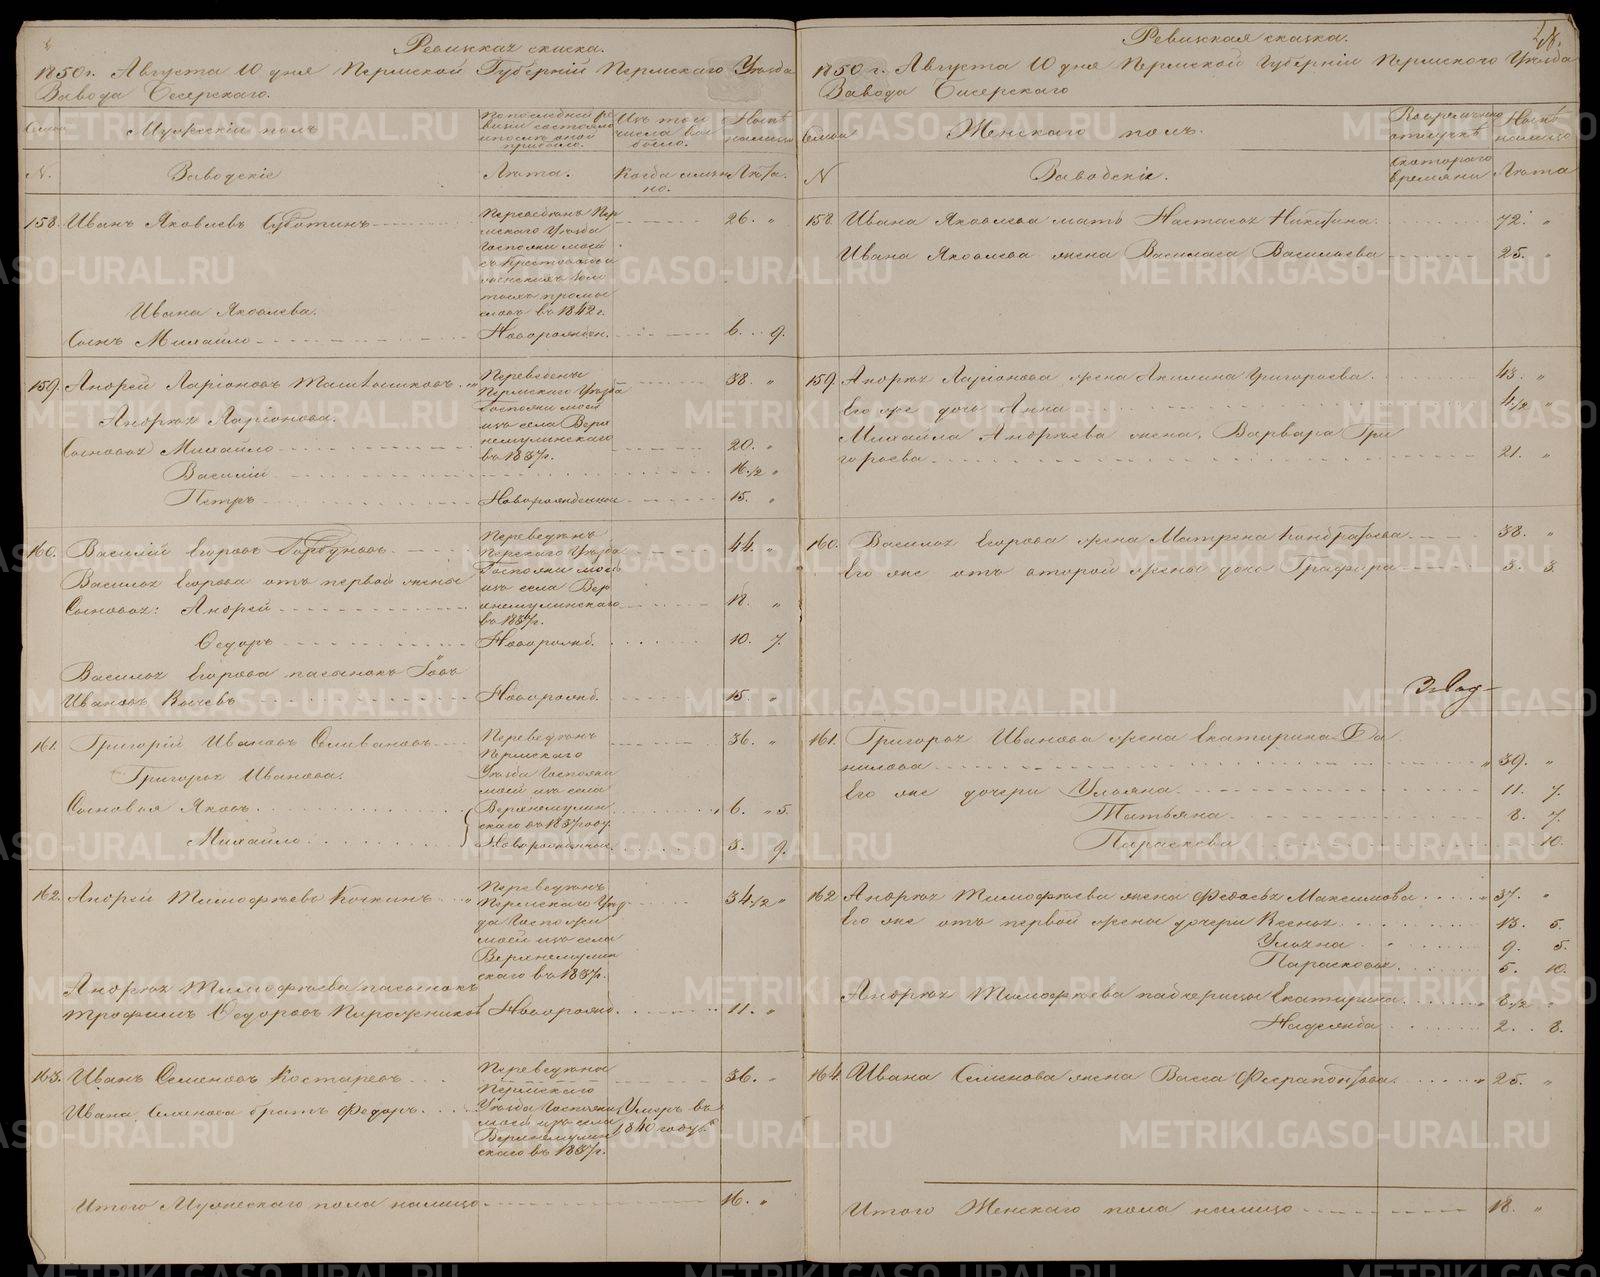 Ревизская сказка.
1850 г. Августа 10 дня Пермской Губерніи Пермскаго Уѣзда
Завода Бисерскаго.
Мужескій полъ
По последней ре
визіи состояло
и послѣ оной
прибыло.
Изъ того
числа вы
было.
Нынѣ
налицо
N.
Заводскіе
Лѣта.
Когда имян
но.
Лѣта.
158. Иванъ Яковлевъ Суботинъ
Переведенъ Пер
мскаго Уѣзда
Госпожи моей
съ Крестовоздви
женскихъ Золо
тыхъ промы
словъ въ 1842 г.
26. „
Ивана Яковлева.
Сынъ Михайло
Новорожден.
6. 9.
159. Андрей Ларіоновъ
Переведены
Пермскаго Уѣзда
Госпожи моей
изъ села Верх
немулинскаго
въ 1837 г.
38. „
Андрея Ларіонова.
Сыновья Михайло
20. „
Василій
16 1/2 „
Петръ
Новорожденной
15. „
160. Василій Егоровъ Горбуновъ
Переведенъ
Пермскаго Уѣзда
Госпожи моей
изъ села Верх
немулинскаго
въ 1837 г.
44. „
Василья Егорова отъ первой жены
Сыновья: Андрей
18. „
Ѳедоръ
Новорожд.
10. 7.
Василья Егорова пасынокъ Іовъ
Ивановъ
Новорожд.
15. „
161. Григорій Ивановъ Селивановъ
Переведенъ
Пермскаго
Уѣзда Госпожи
моей изъ села
Верхнемулин
скаго въ 1837 году.
36. „
Григорья Иванова.
Сыновья Яковъ
6. 5.
Михайло
Новорожденные
3. 9.
162. Андрей Тимофѣевъ Кочкинъ
Переведенъ
Пермскаго Уѣз
да Госпожи
моей изъ села
Верхнемулин
скаго въ 1837 г.
34 1/2 „
Андрея Тимофѣева пасынокъ
Трофимъ Ѳедоровъ
Новорожд.
11. „
163. Иванъ Семеновъ Костаревъ
Переведены
Пермскаго
Уѣзда Госпожи
моей изъ села
Верхнемулин
скаго въ 1837 г.
36. „
Ивана Семенова братъ Федоръ.
Умеръ въ
1840 году.
Итого Мужескаго пола налицо
16. „
Ревизская сказка.
1850 г. Августа 10 дня Пермской Губерніи Пермскаго Уѣзда
Завода Бисерскаго
Женскаго полъ.
Во временной
отлучкѣ
Нынѣ
налицо
N
Заводскіе.
скотораго
времяни
Лѣта
158. Ивана Яковлева мать Настасья Никитина
72. „
Ивана Яковлева жена Василиса Васильева
25. „
159. Андрея Ларіонова жена Акилина Григорьева
43. „
Его же дочь Анна
4 1/2 „
Михайла Андрѣева жена, Варвара Гри
горьева
21. „
160. Василья Егорова жена Матрена Кондратьева
38. „
Его же отъ второй жены дочь Графира
3. 3.
161. Григорья Иванова жена Екатирина Да
нилова
39. „
Его же дочери Ульяна
11. 7.
Татьяна
8. 7.
Параскева
10.
162 Андрея Тимофѣева жена Федосья Максимова
37. „
Его же отъ первой жены дочери Ксенья
13. 5.
Ульяна
9. 5.
Парасковья
5. 10.
Андрея Тимофѣева падчерицы Екатирина
8 1/2 „
Надежда
2. 8.
164. Ивана Семенова жена Васса Ферапонтова
25. „
Итого Женскаго пола налицо
18. „
METRIKI.GASO-URAL.RU